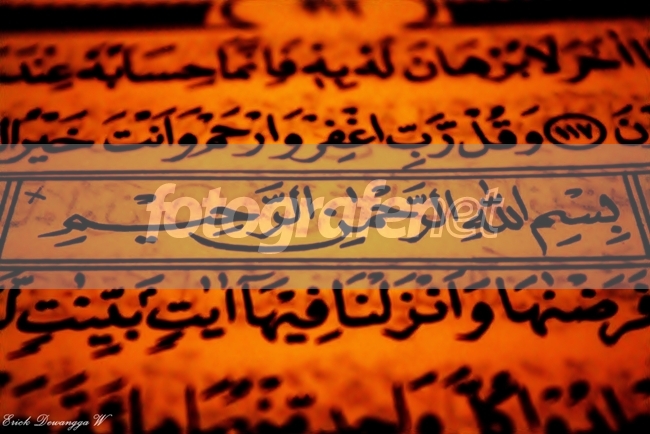 اٰخَرَ لَا بُرْهَانَ لَهٗ بِهٖ فَاِنَّمَا حِسَابُهٗ عِنْدَ
نَ ﴿١١٧﴾ وَقُلْ رَّبِّ اغْفِرْ وَارْحَمْ وَاَنْتَ خَيْرُ
بِسْمِ اللّٰهِ الرَّحْمٰنِ الرَّحِيْمِ
fotografer.net
فَرَضْنٰهَا وَاَنْزَلْنَا فِيْهَآ اٰيٰتٍ بَيِّنٰتٍ
Erick Dewangga W